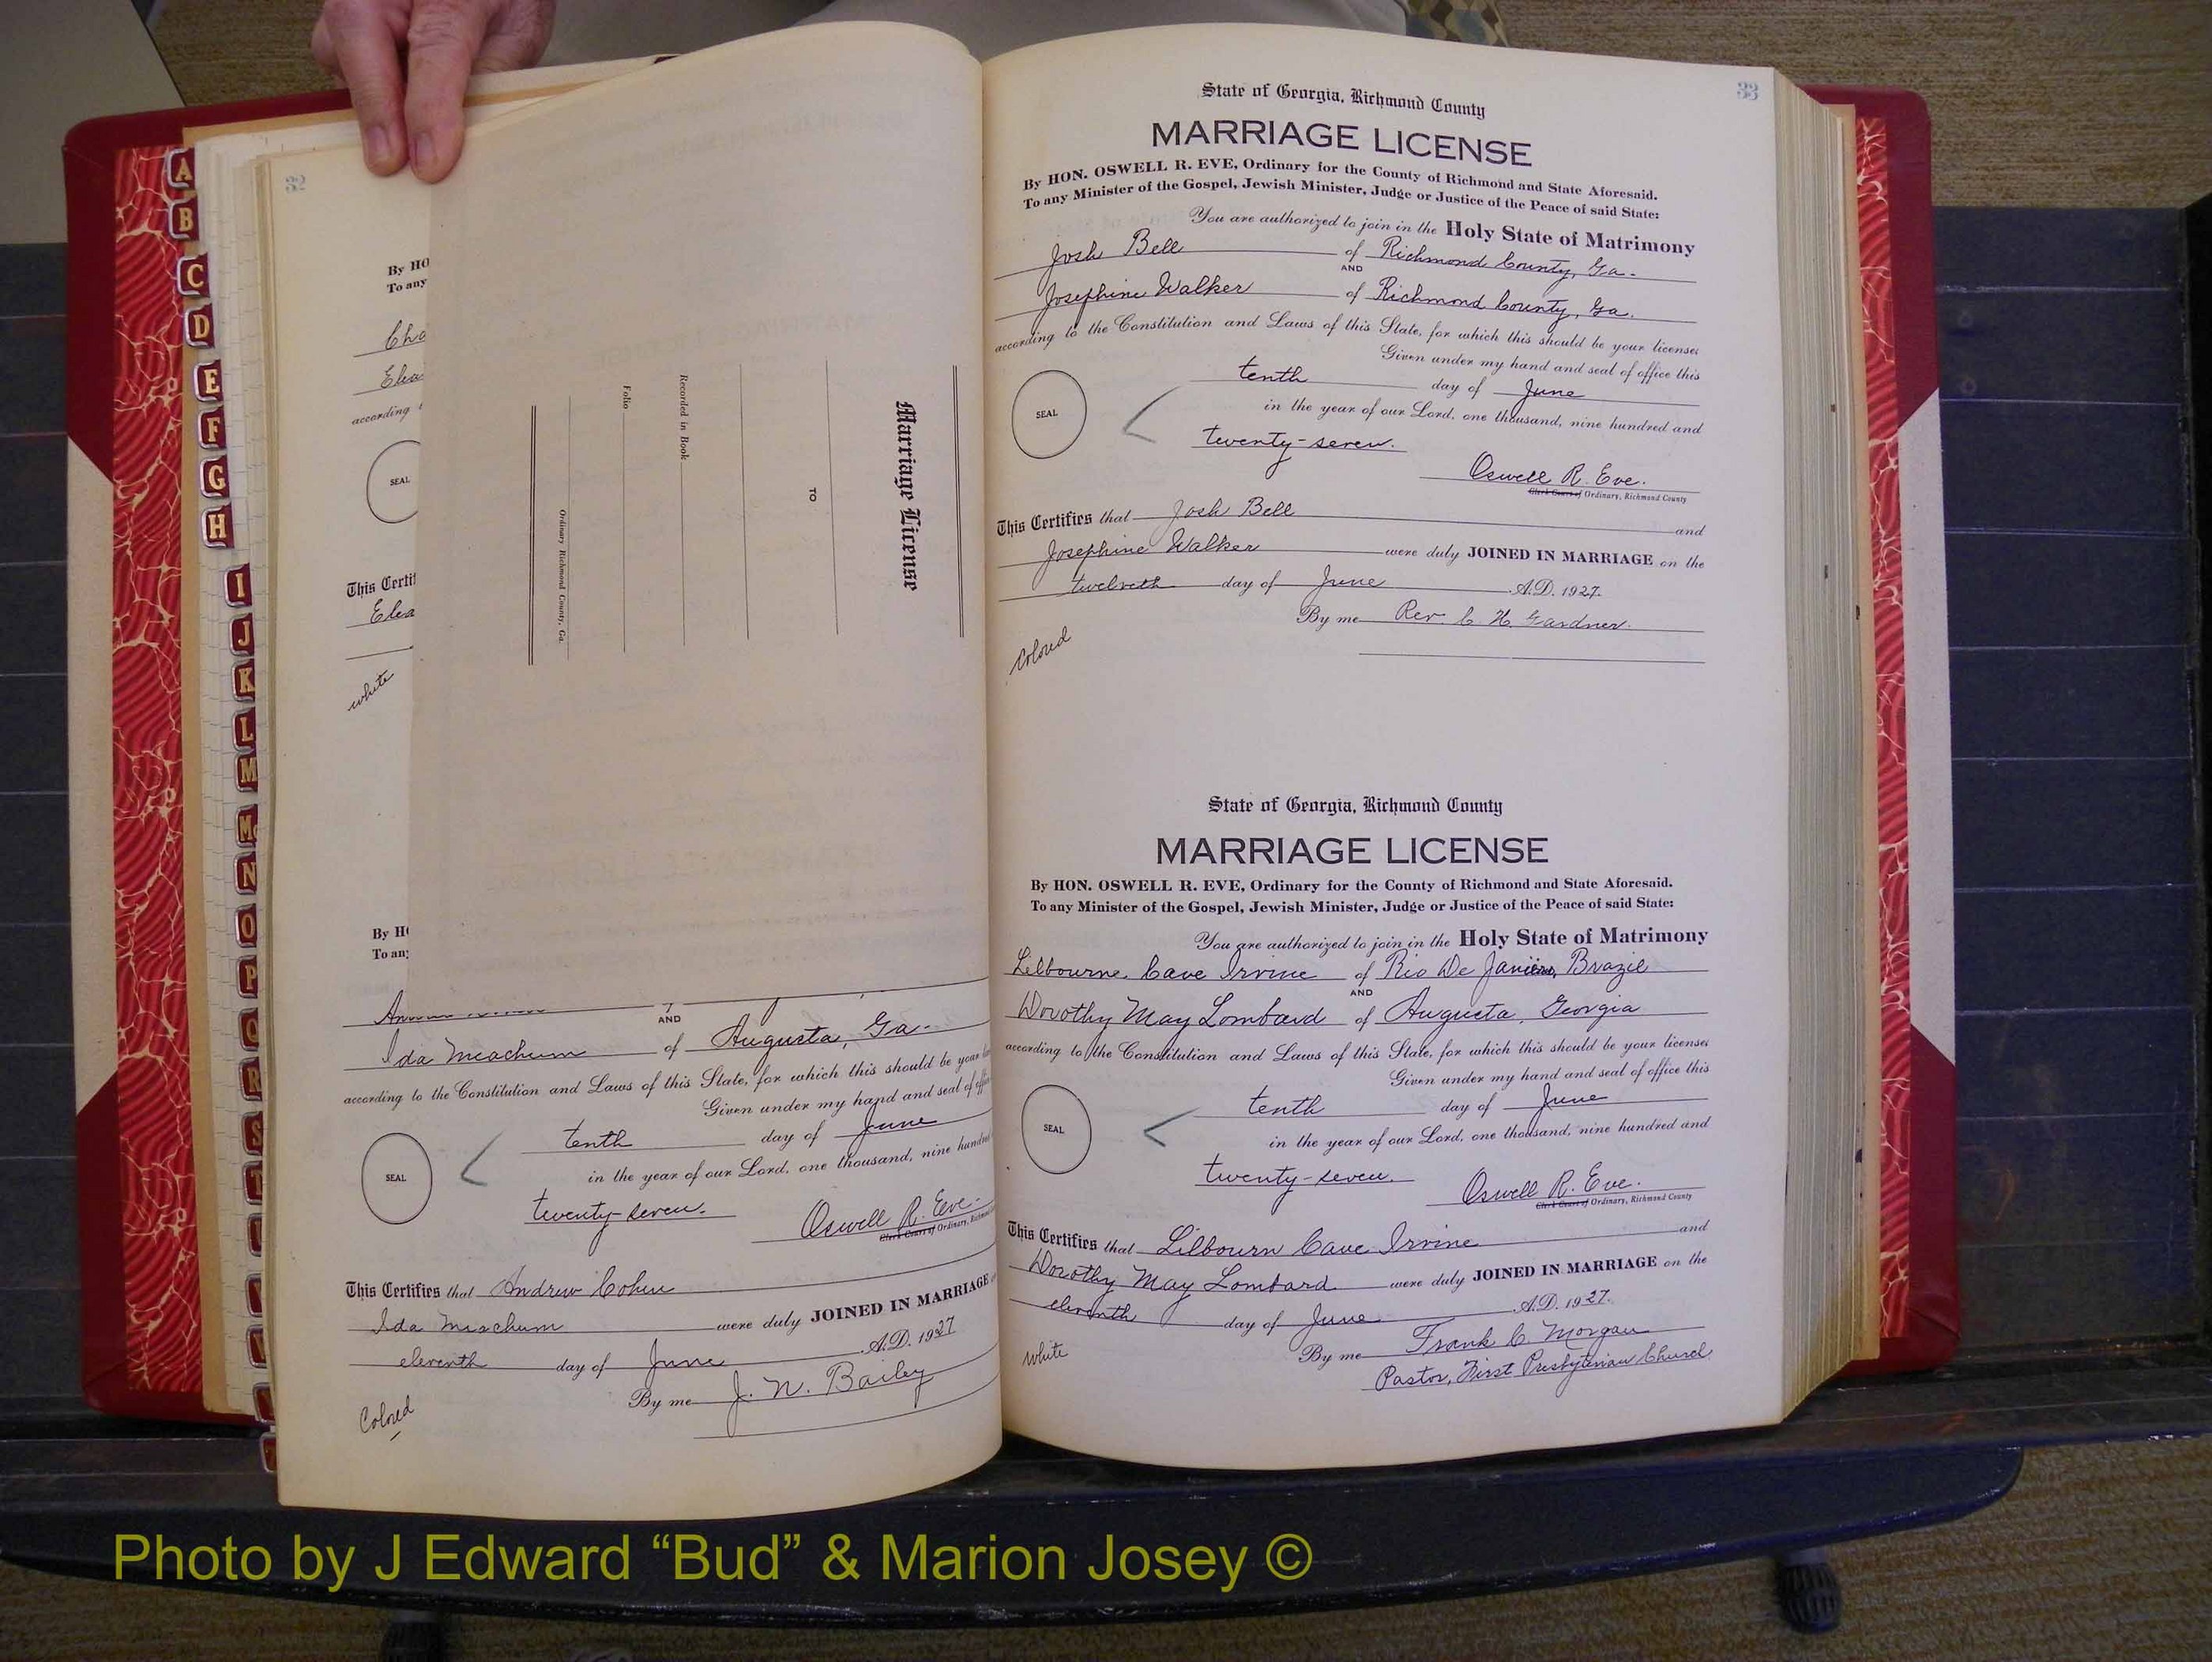 A
B
C
D
E
F
G
H
I
J
K
L
M
Mc
N
O
P
Q
R
S
T
32
By HO
To any
Cho
Elea
according t
SEAL
This Certif
Elea
white
Marriage License
TO
Recorded in Book
Folio
Ordinary Richmond County, Ga.
By H
To any
AND
Ida Meachum of Augusta, Ga.
according to the Constitution and Laws of this State, for which this should be your
Given under my hand and seal of
SEAL
tenth day of June
in the year of our Lord, one thousand, nine hundred
twenty-seven.
Oswell R. Eve.
Clerk Court of Ordinary, Richmond
This Certifies that Andrew Cohen
Ida Meachum were duly JOINED IN MARRIAGE
eleventh day of June A.D. 1927
By me J. N. Bailey
Colored
33
State of Georgia, Richmond County
MARRIAGE LICENSE
By HON. OSWELL R. EVE, Ordinary for the County of Richmond and State Aforesaid.
To any Minister of the Gospel, Jewish Minister, Judge or Justice of the Peace of said State:
You are authorized to join in the Holy State of Matrimony
Josh Bell of Richmond County, Ga.
AND
Josephine Walker of Richmond County, Ga.
according to the Constitution and Laws of this State, for which this should be your license:
Given under my hand and seal of office this
SEAL
tenth day of June
in the year of our Lord, one thousand, nine hundred and
twenty-seven.
Oswell R. Eve.
Clerk Court of Ordinary, Richmond County
This Certifies that Josh Bell and
Josephine Walker were duly JOINED IN MARRIAGE on the
twelveth day of June A.D. 1927.
By me Rev. C. H. Gardner.
Colored
State of Georgia, Richmond County
MARRIAGE LICENSE
By HON. OSWELL R. EVE, Ordinary for the County of Richmond and State Aforesaid.
To any Minister of the Gospel, Jewish Minister, Judge or Justice of the Peace of said State:
You are authorized to join in the Holy State of Matrimony
Lilbourne Cave Irvine of Rio De Janiero, Brazil
AND
Dorothy May Lombard of Augusta, Georgia
according to the Constitution and Laws of this State, for which this should be your license:
Given under my hand and seal of office this
SEAL
tenth day of June
in the year of our Lord, one thousand, nine hundred and
twenty-seven.
Oswell R. Eve.
Clerk Court of Ordinary, Richmond County
This Certifies that Lilbourn Cave Irvine and
Dorothy May Lombard were duly JOINED IN MARRIAGE on the
eleventh day of June A.D. 1927.
By me Frank C. Morgan
Pastor, First Presbyterian Church
white
Photo by J Edward “Bud” & Marion Josey ©